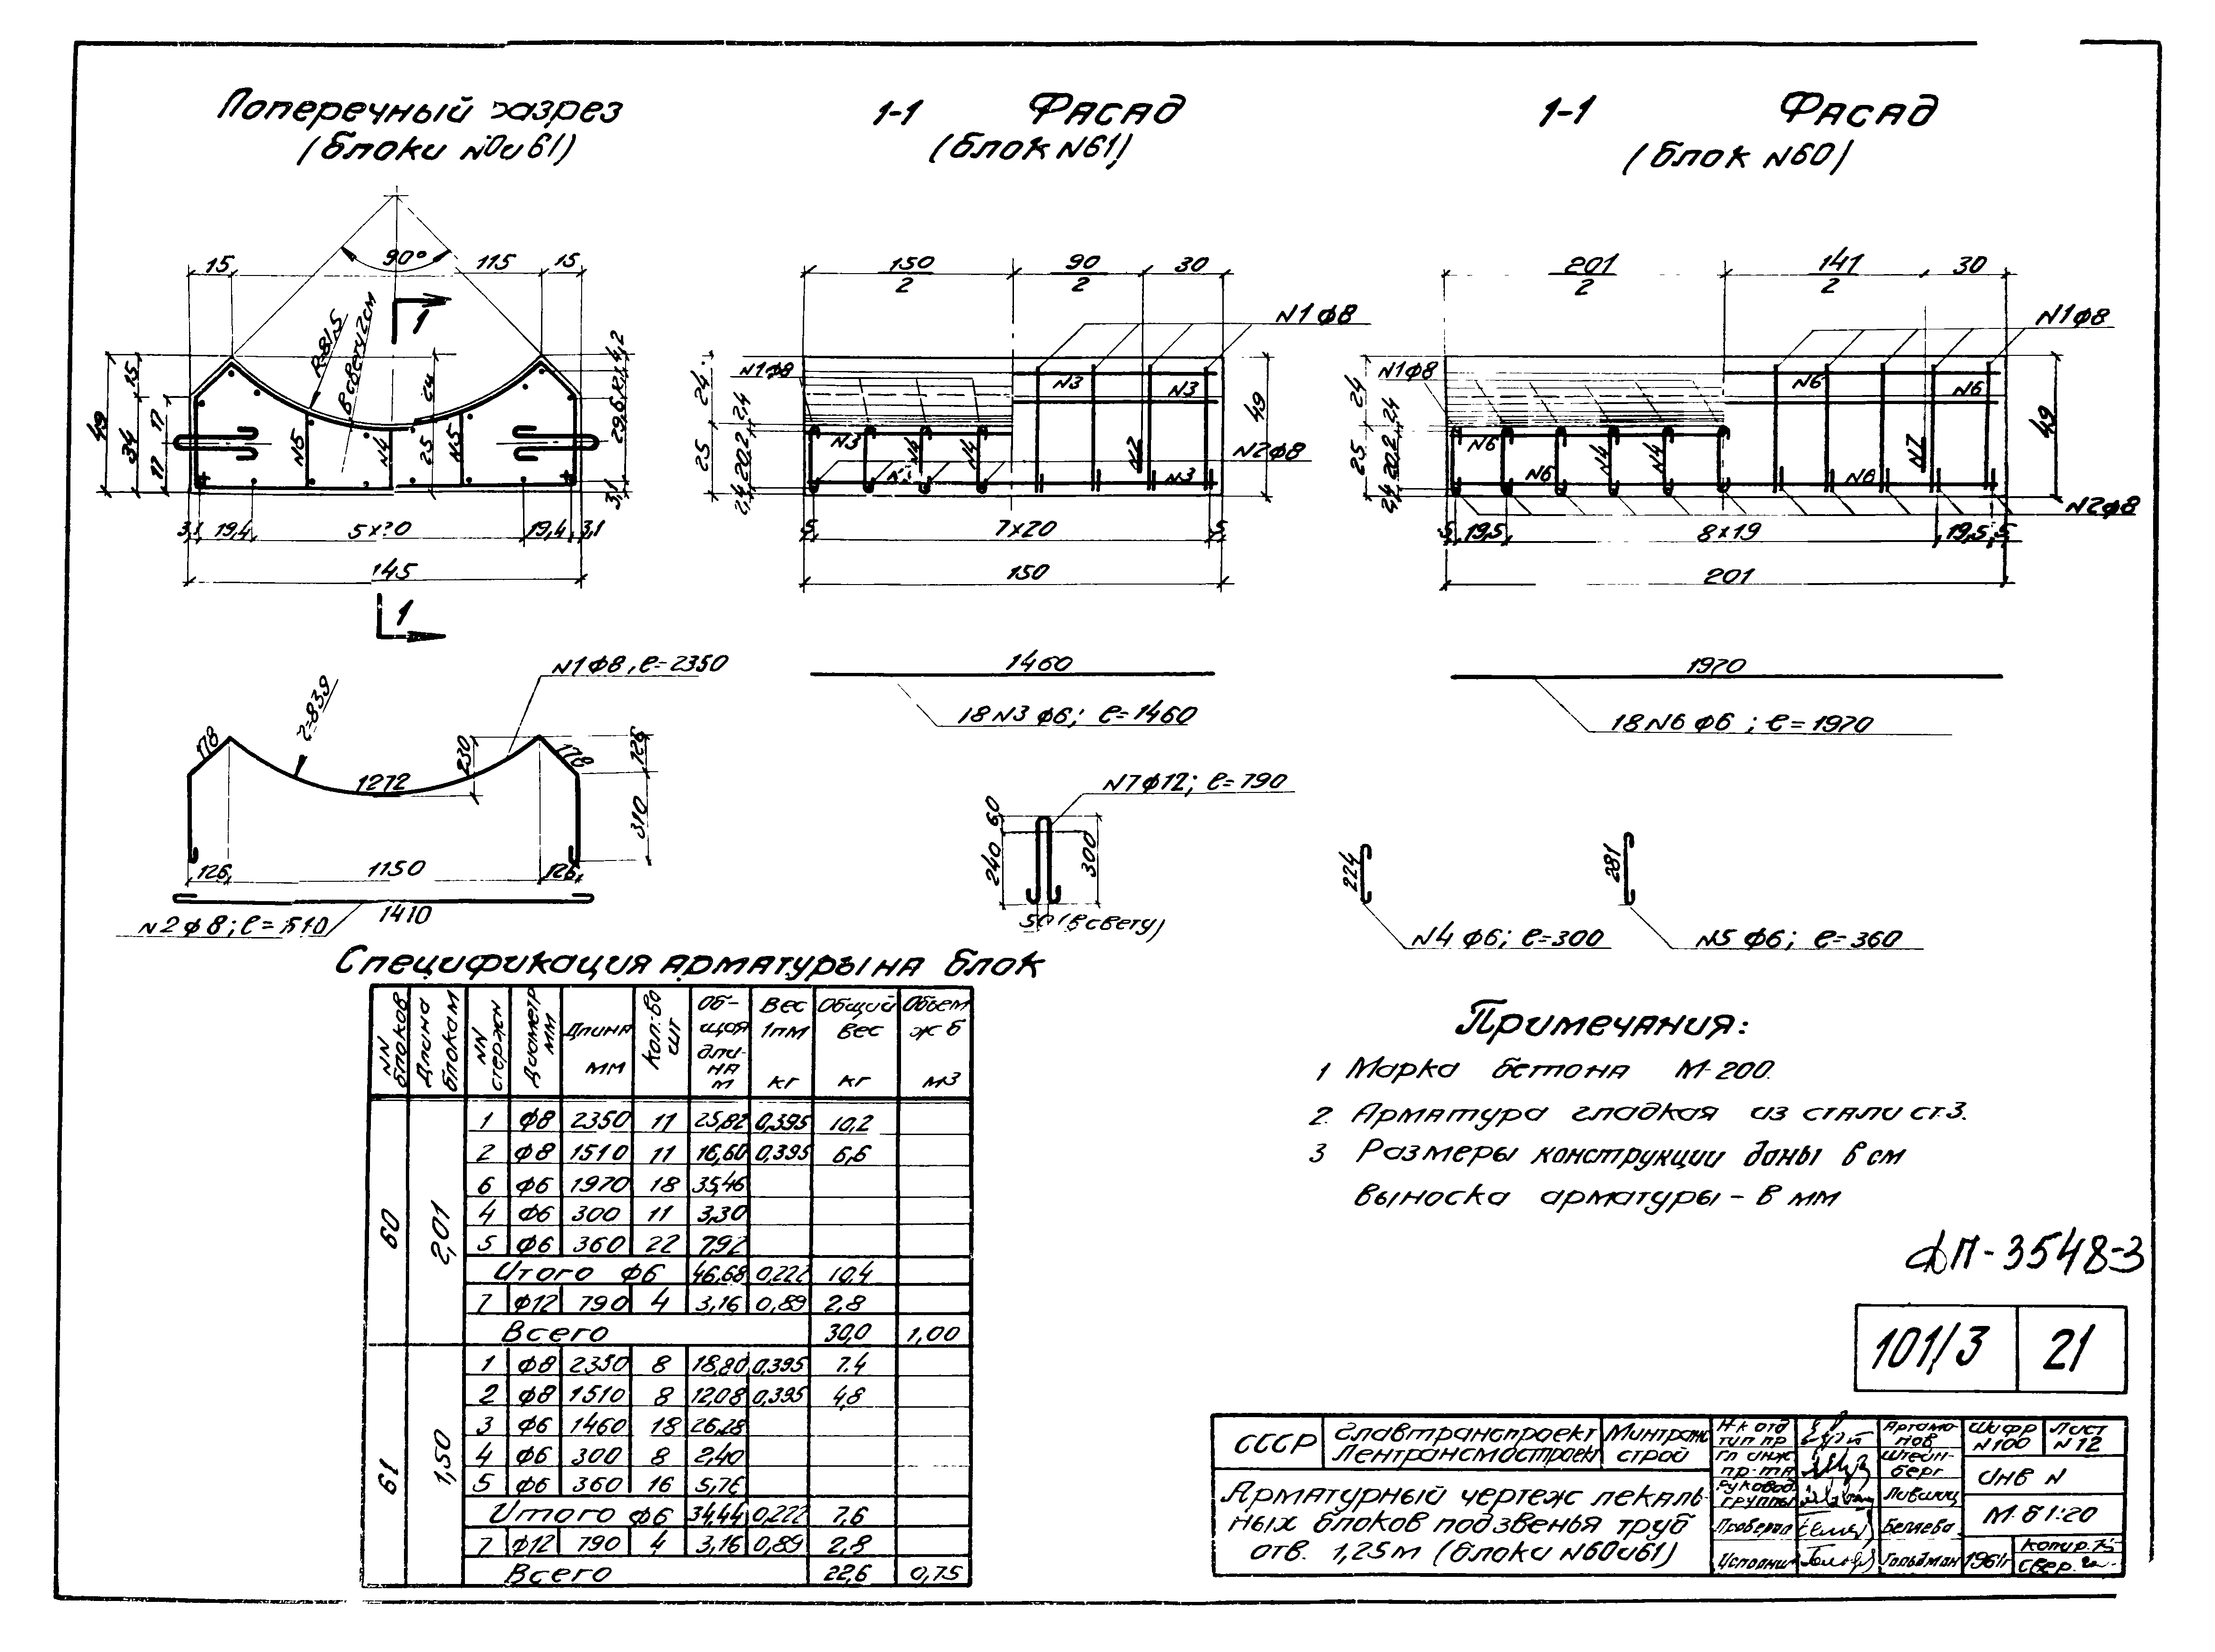 Поперечный разрез
(блоки N0и61)
1-1 Фасад
(блок N61)
1-1 Фасад
(блок N60)
15
90°
115
15
R=81,5
в свету 2см
1
49
15
34
17
17
N5
N4
N5
25
4,2
3,1
3,1
19,4
19,4
3,1
145
1
150
2
90
2
30
N1ф8
N1ф8
24
2,4
25
20,2
2,4
N3
N3
N3
N4
N4
N2
N3
N2ф8
49
5
7×20
5
150
201
2
141
2
30
N1ф8
N1ф8
24
2,4
25
20,2
2,4
N6
N6
N6
N6
N4
N4
N7
N6
N2ф8
49
5
19,5
8×19
19,5
5
201
N1ф8, ℓ=2350
178
r=839
1272
230
178
126
310
126
1150
126
1410
N2ф8; ℓ=1510
1460
18N3 ф6; ℓ=1460
1970
18N6 ф6; ℓ=1970
N7ф12; ℓ=790
60
240
300
50 (в свету)
224
N4 ф6; ℓ=300
281
N5 ф6; ℓ=360
Спецификация арматуры на блок
NN блоков
Длина блокам
NN стержн
Диаметр мм
Длина мм
Кол-во шт
Общая длина м
Вес 1пм кг
Общий вес кг
Объем ж б м3
60 2,01
1 ф8 2350 11 25,82 0,395 10,2
2 ф8 1510 11 16,60 0,395 6,6
6 ф6 1970 18 35,46
4 ф6 300 11 3,30
5 ф6 360 22 7,92
Итого ф6 46,68 0,222 10,4
7 ф12 790 4 3,16 0,89 2,8
Всего 30,0 1,00
61 1,50
1 ф8 2350 8 18,80 0,395 7.4
2 ф8 1510 8 12,08 0,395 4,8
3 ф6 1460 18 26,28
4 ф6 300 8 2,40
5 ф6 360 16 5,76
Итого ф6 34,44 0,222 7,6
7 ф12 790 4 3,16 0,89 2,8
Всего 22,6 0,75
Примечания:
1 Марка бетона М-200.
2. Арматура гладкая из стали ст.3.
3 Размеры конструкции даны в см
выноска арматуры – в мм
ФП-3548-3
101/3 21
СССР
Главтранспроект
Лентрансмостпроект
Минтранс
строй
Арматурный чертеж лекаль-
ных блоков под звенья труб
отв. 1,25м (блоки N60и61)
Н-к отд
тип пр
Артамо-
нов
Гл инж
пр-та
Штейн-
берг
Руковод
группы
Лившиц
Проверил
Беляева
Исполнил
Гольдман
1961г
Шифр
N100
Лист
N12
Инв N
М-б 1:20
Копир.
Свер.